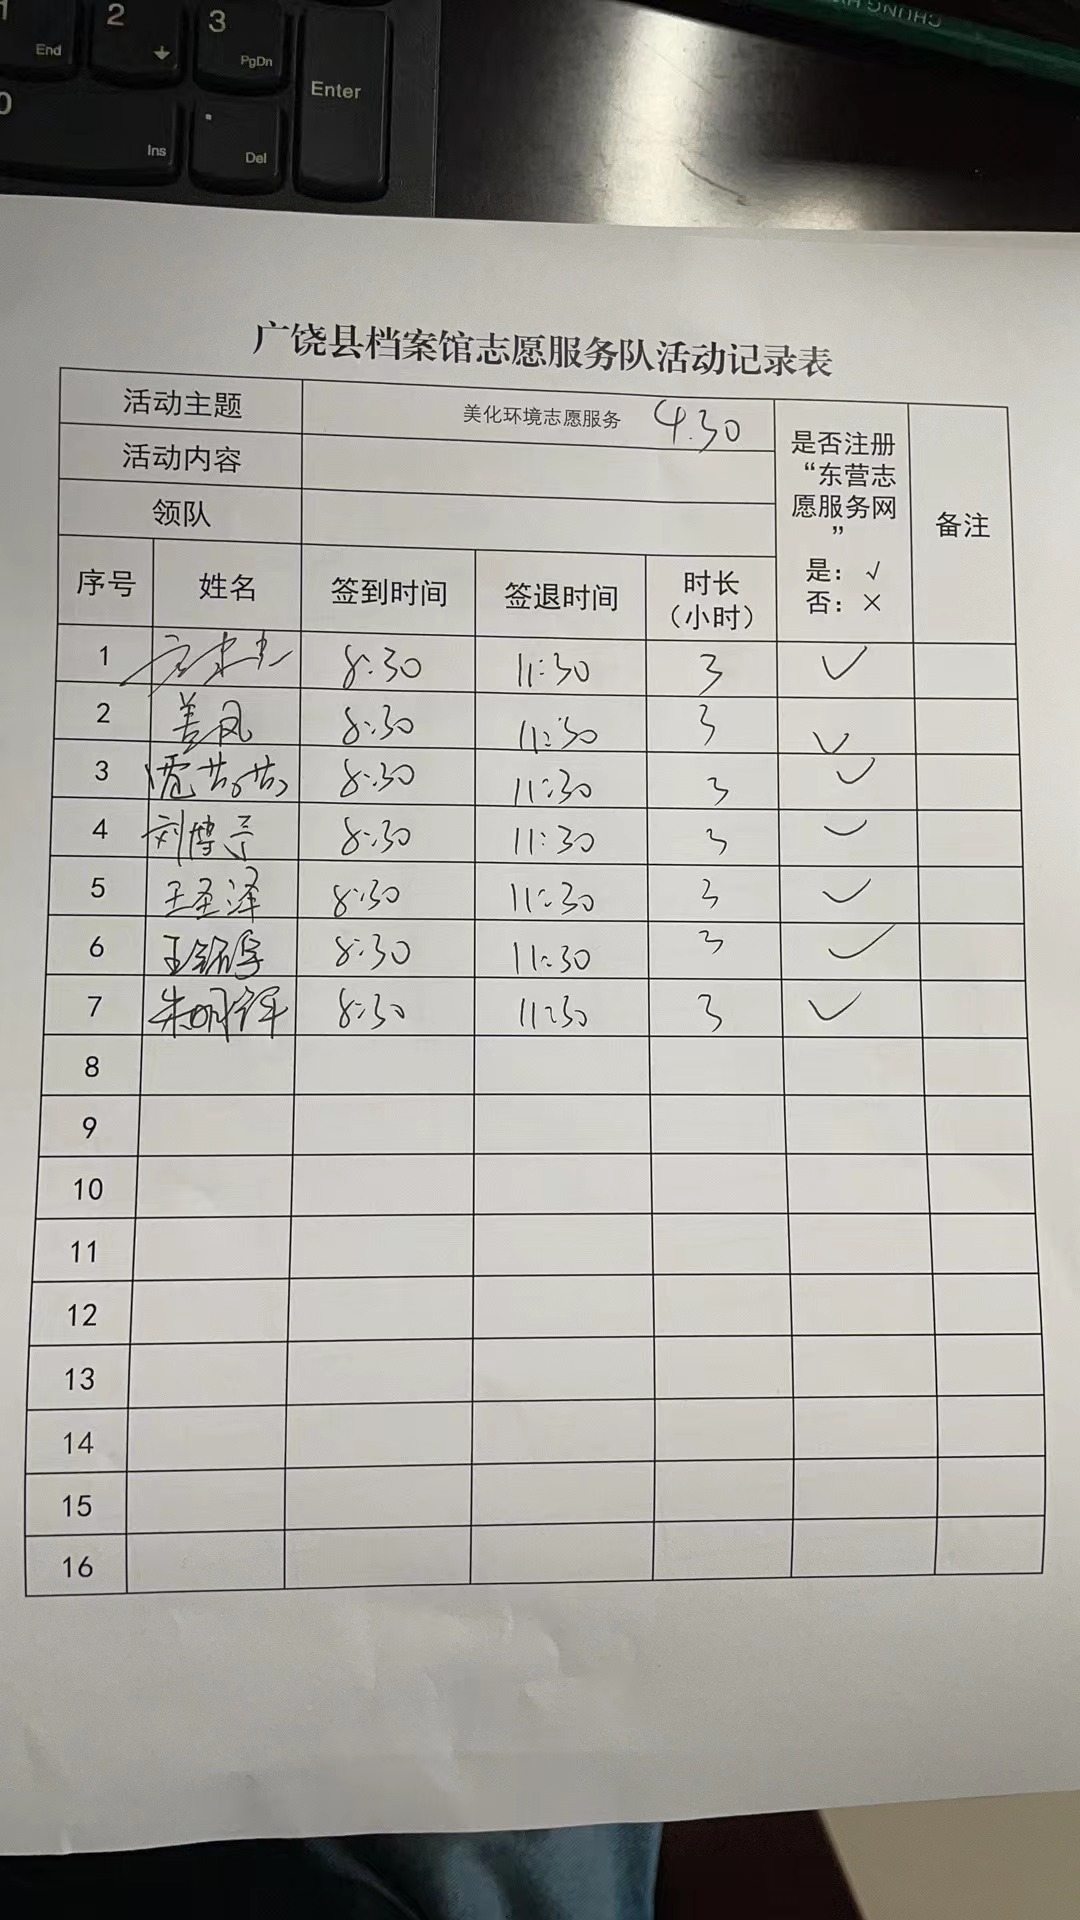 1 2 3
End PgDn Enter
0 . Ins Del
CHUNG
广饶县档案馆志愿服务队活动记录表
活动主题 美化环境志愿服务 4.30
活动内容
领队
是否注册
“东营志
愿服务网
”
是：√
否：×
备注
序号 姓名 签到时间 签退时间 时长
（小时）
1 8:30 11:30 3 ✓
2 8:30 11:30 3 ✓
3 8:30 11:30 3 ✓
4 刘博 8:30 11:30 3 ✓
5 王圣泽 8:30 11:30 3 ✓
6 王铭 8:30 11:30 3 ✓
7 朱明 8:30 11:30 3 ✓
8
9
10
11
12
13
14
15
16